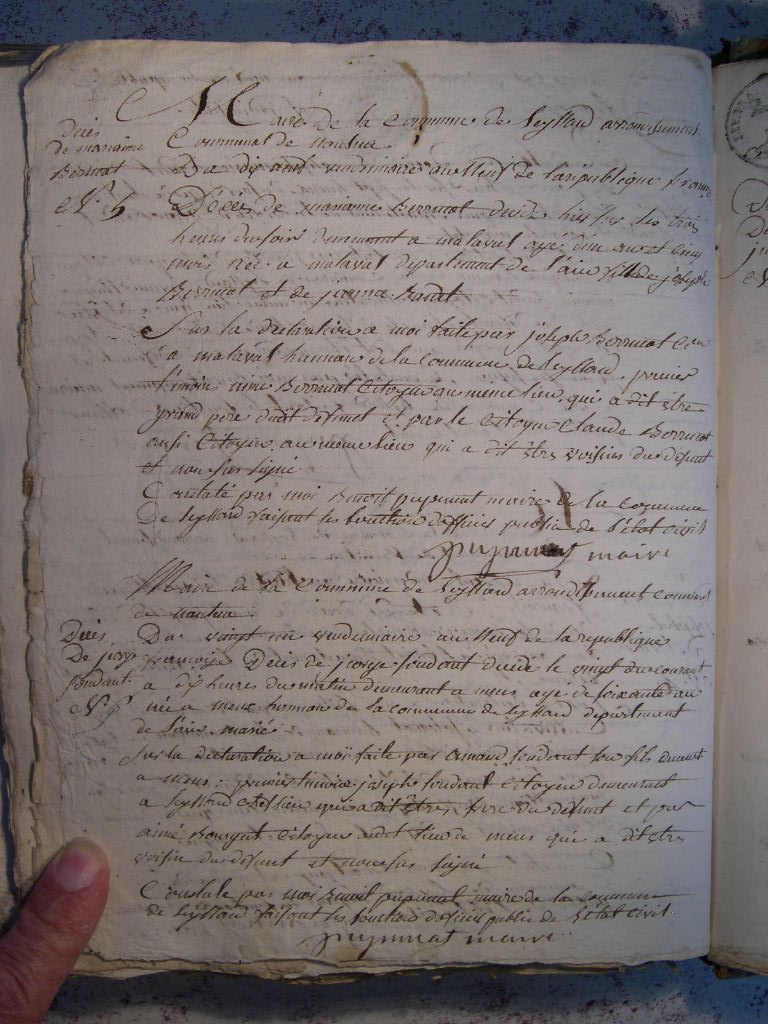 Mairie de la Commune de Seyssiard arrondissement
Communal de nantua
déces
de mariaine
Berrucat
N° 6
Du dix vendemiaire an Neuf de la republique
Déces de marianne Berrucat decedé hier les trois
heures du soir demeurant a malaval agé d'un an et cinq
mois née a malaval departement de l'ain fille de joseph
Berrucat et de
Sur la declaration a moi faite par joseph Berrucat
a malaval hameau de la Commune de Seyssiard. premier
Timoin aimé Berrucat Citoyen au meme lieu qui a dit être
grand pere dudit defunct et par le Citoyen Claude Berrucat
aussi Citoyen au meme lieu qui a dit être voisins du defunt
et non seu signé
Constaté par moi Benoit maire de la Commune
De Seyssiard faisant les fonctions d'officier public de l'état Civil
maire
Maire de la Commune de Seyssiard arrondissement Communal
de nantua.
Décès
De
N° 7
Du vingt un vendemiaire an Neuf de la republique
françoise Décès de foudant décédé le vingt du courant
a dix heures du matin demeurant a mens agé de soixante an
née a mens hameau de la commune de Seyssiard département
de l'ain. marié
sur la declaration a moi faite par foudant son fils demeurant
a mens. premier timoin joseph foudant Citoyen demeurant
a Seyssiard Chef lieu qui a dit être frere du defunt et par
aimé Citoyen audit lieu de mens qui a dit être
voisin du défunt et non seu signé
Constaté par moi Benoit maire de la commune
de Seyssiard faisant les fonctions d'officier public de l'État Civil
maire